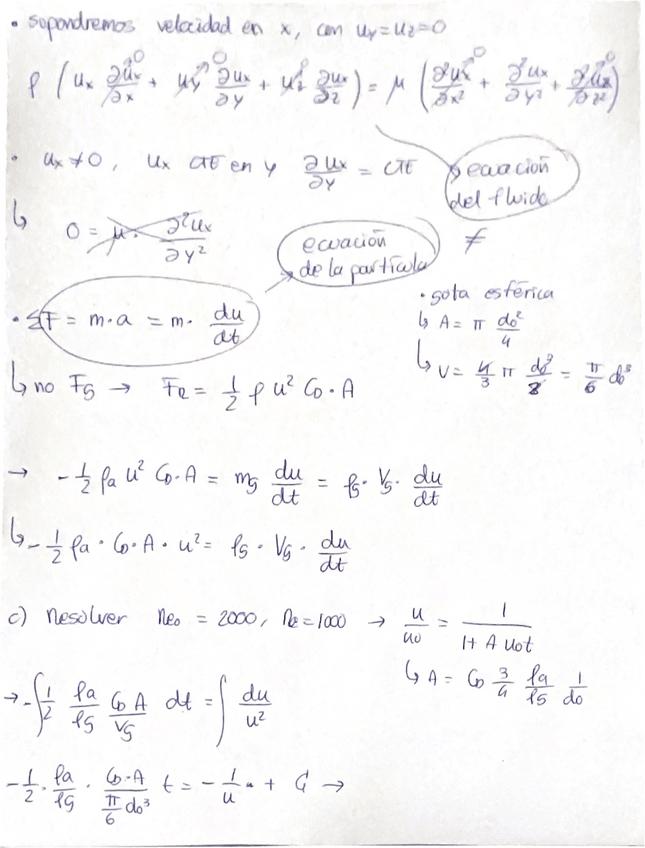 • supondremos velocidad en x, con uy=uz=0
ρ (ux ∂ux/∂x + uy ∂ux/∂y + uz ∂ux/∂z) = μ (∂²ux/∂x² + ∂²ux/∂y² + ∂²ux/∂z²)
0 0 0 0
• ux≠0, ux CTE en y ∂ux/∂y = CTE
ecuación
del fluido
↳ 0 = μ · ∂²ux/∂y²
ecuación
de la partícula
≠
• ΣF = m·a = m· du/dt
• gota esférica
↳ A = π do²/4
↳ V = 4/3 π do³/8 = π/6 do³
↳ no Fg → FR = 1/2 ρ u² CD·A
→ -1/2 ρa u² CD·A = mg du/dt = ρg · Vg · du/dt
↳ -1/2 ρa · CD·A · u² = ρg · Vg · du/dt
c) Resolver Reo = 2000, Re=1000 → u/uo = 1/(1+ A uot)
↳ A = CD 3/4 ρa/ρg 1/do
→ -∫ 1/2 ρa/ρg CD A/Vg dt = ∫ du/u²
-1/2 · ρa/ρg · CD·A/(π/6 do³) t = -1/u + C1 →